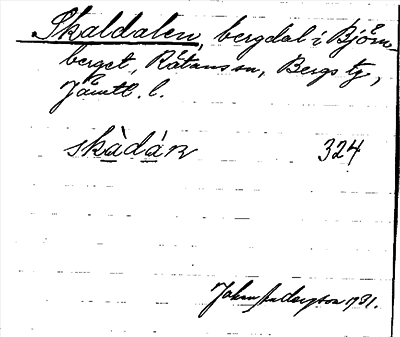 Skaldalen, bergdal i Björn-
berget, Rätans sn, Bergs tg,
Jämtl. l.
skàdán 324
Johan Anderzson 1931.